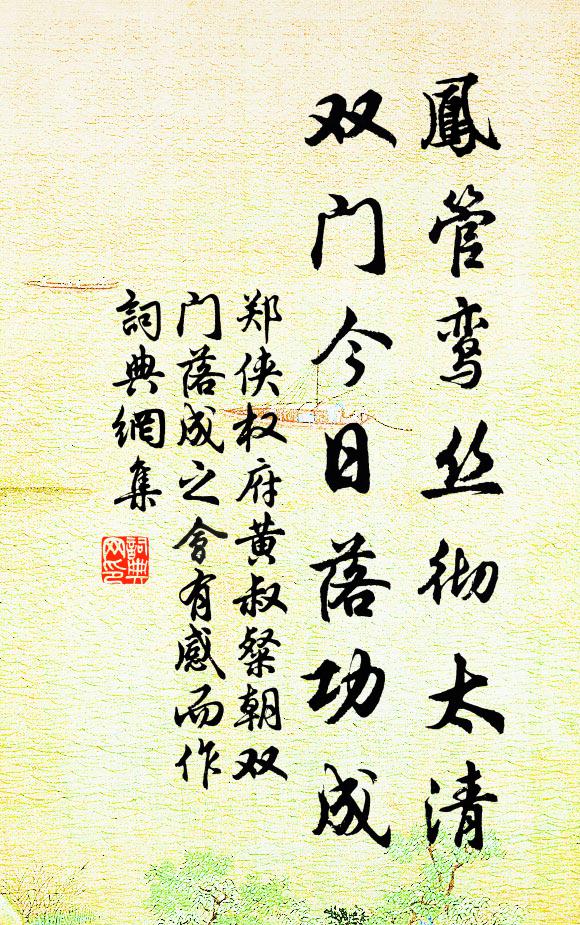 鳳管鸾丝彻太清
双门今日落功成
郑侠权府黄叔粲朝双
门落成之会有感而作
詞典網集
詞典
网印